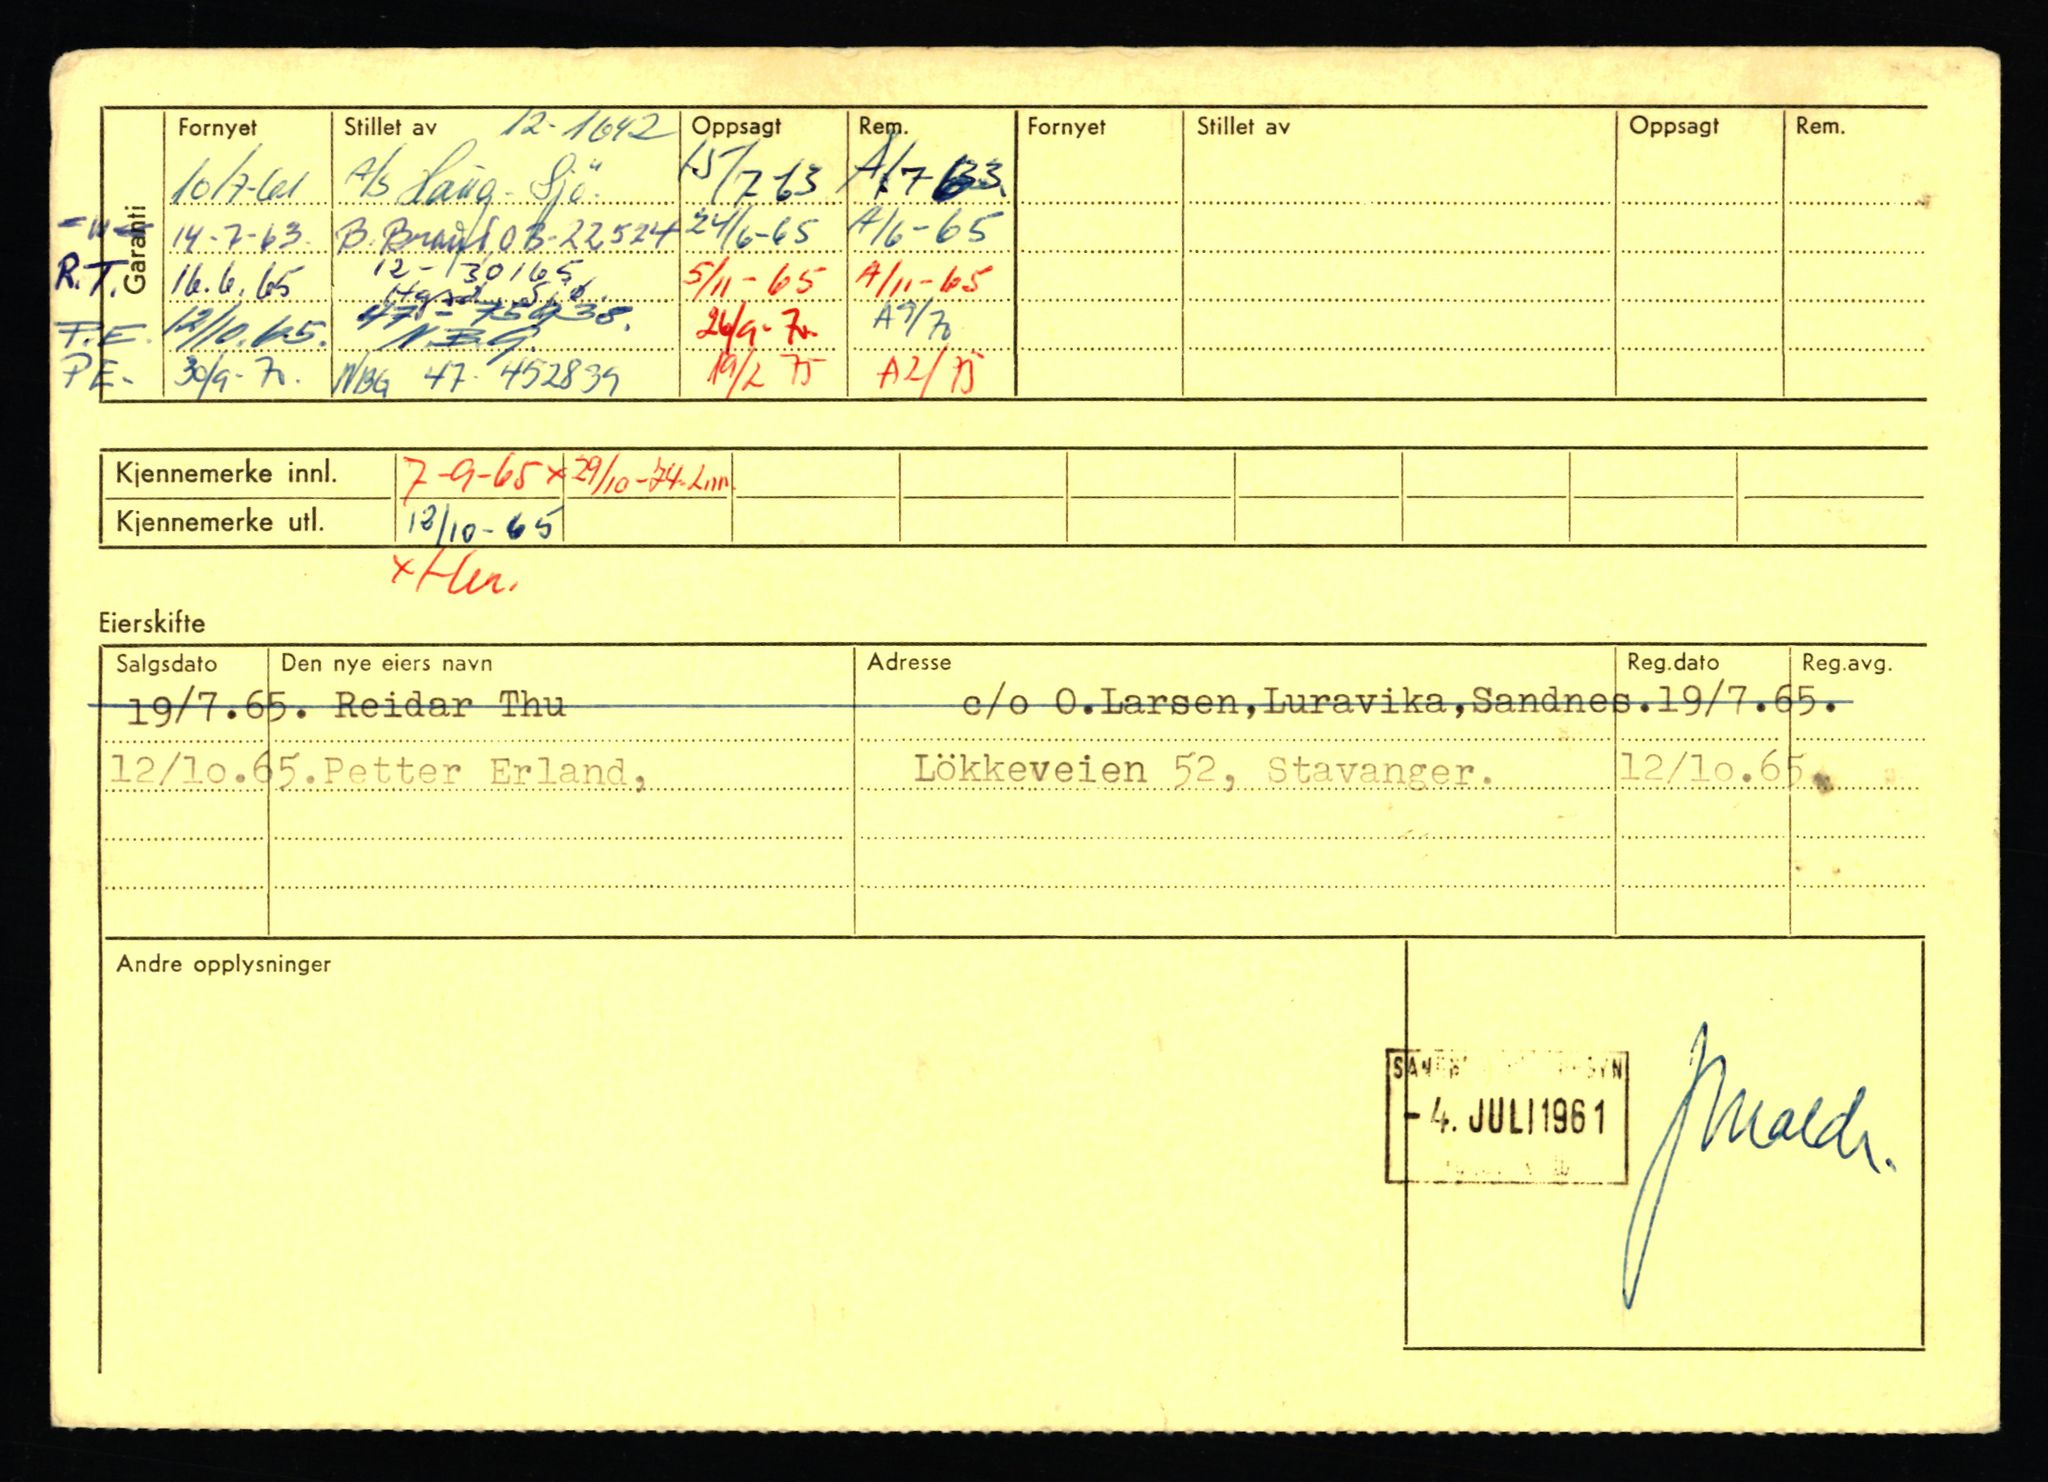 Garanti Fornyet Stillet av 12-1642 Oppsagt Rem. Fornyet Stillet av Oppsagt Rem.
10/7-61 A/S Haug-Sjö. 15/7-63 A/7 63
-"- 14-7-63. B. Brand OB-22524 24/6-65 A/6-65
R.T. 16.6.65 12-130165 5/11-65 A/11-65
P.E. 12/10.65. 26/9-70. A9/70
N.B.G.
PE. 30/9-70. NBG 47-452839 19/2 75 A2/75
Kjennemerke innl. 7-9-65 x 29/10-74.
Kjennemerke utl. 12/10-65
Eierskifte
Salgsdato Den nye eiers navn Adresse Reg.dato Reg.avg.
19/7.65. Reidar Thu c/o O.Larsen,Luravika,Sandnes. 19/7.65.
12/lo.65. Petter Erland, Lökkeveien 52, Stavanger. 12/lo.65.
Andre opplysninger
-4. JULI 1961